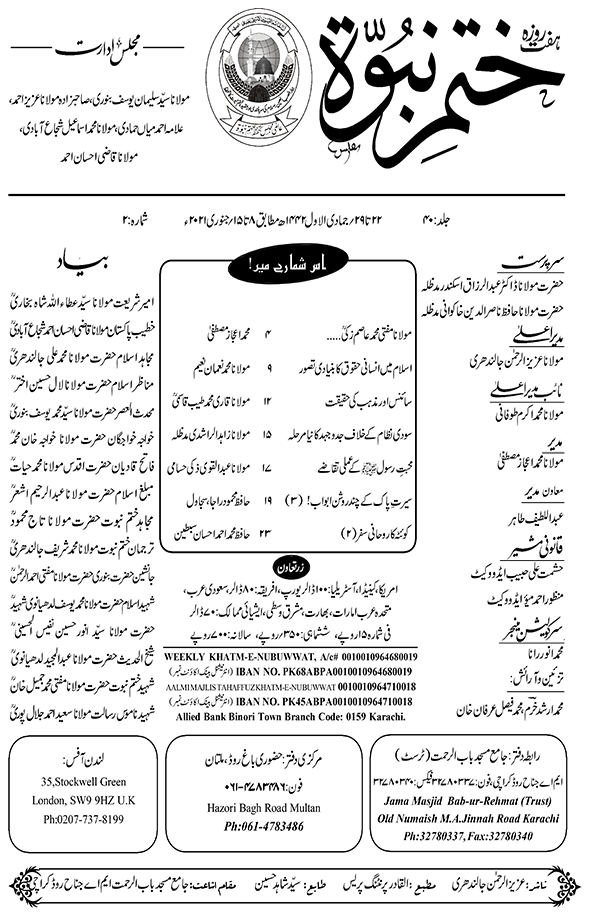 ہفت روزہ
ختم نبوۃ
مجلس ادارت
مولانا سیّد سلیمان یوسف بنوری، صاحبزادہ مولانا عزیز احمد،
علامہ احمد میاں حمادی، مولانا محمد اسماعیل شجاع آبادی،
مولانا قاضی احسان احمد
جلد: ۴۰
۲۲ تا ۲۹؍ جمادی الاول ۱۴۴۲ھ مطابق ۸ تا ۱۵؍ جنوری ۲۰۲۱ء
شمارہ: ۲
سرپرست
حضرت مولانا ڈاکٹر عبدالرزاق اسکندر مدظلہ
حضرت مولانا حافظ ناصر الدین خاکوانی مدظلہ
مدیر اعلیٰ
مولانا عزیز الرحمٰن جالندھری
نائب مدیر اعلیٰ
مولانا محمد اکرم طوفانی
مدیر
مولانا محمد اعجاز مصطفیٰ
معاون مدیر
عبد اللطیف طاہر
قانونی مشیر
حشمت علی حبیب ایڈووکیٹ
منظور احمد میؤ ایڈووکیٹ
سرکولیشن منیجر
محمد انور رانا
تزئین و آرائش:
محمد ارشد خرم، محمد فیصل عرفان خان
اس شمارے میں!
مولانا مفتی محمد عاصم زکیؒ ..... ۴ محمد اعجاز مصطفیٰ
اسلام میں انسانی حقوق کا بنیادی تصور ۹ مولانا محمد نعمان نعیم
سائنس اور مذہب کی حقیقت ۱۲ مولانا قاری محمد طیب قاسمیؒ
سودی نظام کے خلاف جدوجہد کا نیا مرحلہ ۱۵ مولانا زاہد الراشدی مدظلہ
محبتِ رسول ﷺ کے عملی تقاضے ۱۷ مولانا عبدالقوی ذکی حسامی
سیرتِ پاک کے چند روشن ابواب! (۳) ۱۹ حافظ محمود راجا، سجاول
کوئٹہ کا روحانی سفر (۲) ۲۳ حافظ محمد احسان سبطین
زر تعاون
امریکا، کینیڈا، آسٹریلیا: ۱۰۰ ڈالر یورپ، افریقہ: ۸۰ ڈالر، سعودی عرب،
متحدہ عرب امارات، بھارت، مشرق وسطیٰ، ایشیائی ممالک: ۷۰ ڈالر
فی شمارہ ۱۵ روپے، ششماہی: ۳۵۰ روپے، سالانہ: ۷۰۰ روپے
WEEKLY KHATM-E-NUBUWWAT, A/c# 0010010964680019
IBAN NO. PK68ABPA0010010964680019 (انٹرنیشنل بینک اکاؤنٹ نمبر)
AALMI MAJLIS TAHAFFUZ KHATM-E-NUBUWWAT 0010010964710018
IBAN NO. PK45ABPA0010010964710018 (انٹرنیشنل بینک اکاؤنٹ نمبر)
Allied Bank Binori Town Branch Code: 0159 Karachi.
بیاد
امیر شریعت مولانا سیّد عطاء اللہ شاہ بخاریؒ
خطیب پاکستان مولانا قاضی احسان احمد شجاع آبادیؒ
مجاہد اسلام حضرت مولانا محمد علی جالندھریؒ
مناظر اسلام حضرت مولانا لال حسین اخترؒ
محدث العصر حضرت مولانا سیّد محمد یوسف بنوریؒ
خواجہ خواجگان حضرت مولانا خواجہ خان محمدؒ
فاتح قادیان حضرت اقدس مولانا محمد حیاتؒ
مبلغ اسلام حضرت مولانا عبدالرحیم اشعرؒ
مجاہد ختم نبوت حضرت مولانا تاج محمودؒ
ترجمان ختم نبوت حضرت مولانا محمد شریف جالندھریؒ
جانشین حضرت بنوری حضرت مولانا مفتی احمد الرحمٰنؒ
شہید اسلام حضرت مولانا محمد یوسف لدھیانوی شہیدؒ
حضرت مولانا سیّد انور حسین نفیس الحسینیؒ
شیخ الحدیث حضرت مولانا عبدالمجید لدھیانویؒ
شہید ختم نبوت حضرت مولانا مفتی محمد جمیل خانؒ
شہید ناموس رسالت مولانا سعید احمد جلال پوریؒ
رابطہ دفتر: جامع مسجد باب الرحمت (ٹرسٹ)
ایم اے جناح روڈ کراچی، فون: ۳۲۷۸۰۳۳۷ فیکس: ۳۲۷۸۰۳۴۰
Jama Masjid Bab-ur-Rehmat (Trust)
Old Numaish M.A.Jinnah Road Karachi
Ph:32780337, Fax:32780340
مرکزی دفتر: حضوری باغ روڈ، ملتان
فون: ۰۶۱-۴۷۸۳۴۸۶
Hazori Bagh Road Multan
Ph:061-4783486
لندن آفس:
35,Stockwell Green
London, SW9 9HZ U.K
Ph:0207-737-8199
ناشر: عزیز الرحمٰن جالندھری مطبع: القادر پرنٹنگ پریس طابع: سیّد شاہد حسین مقام اشاعت: جامع مسجد باب الرحمت ایم اے جناح روڈ کراچی